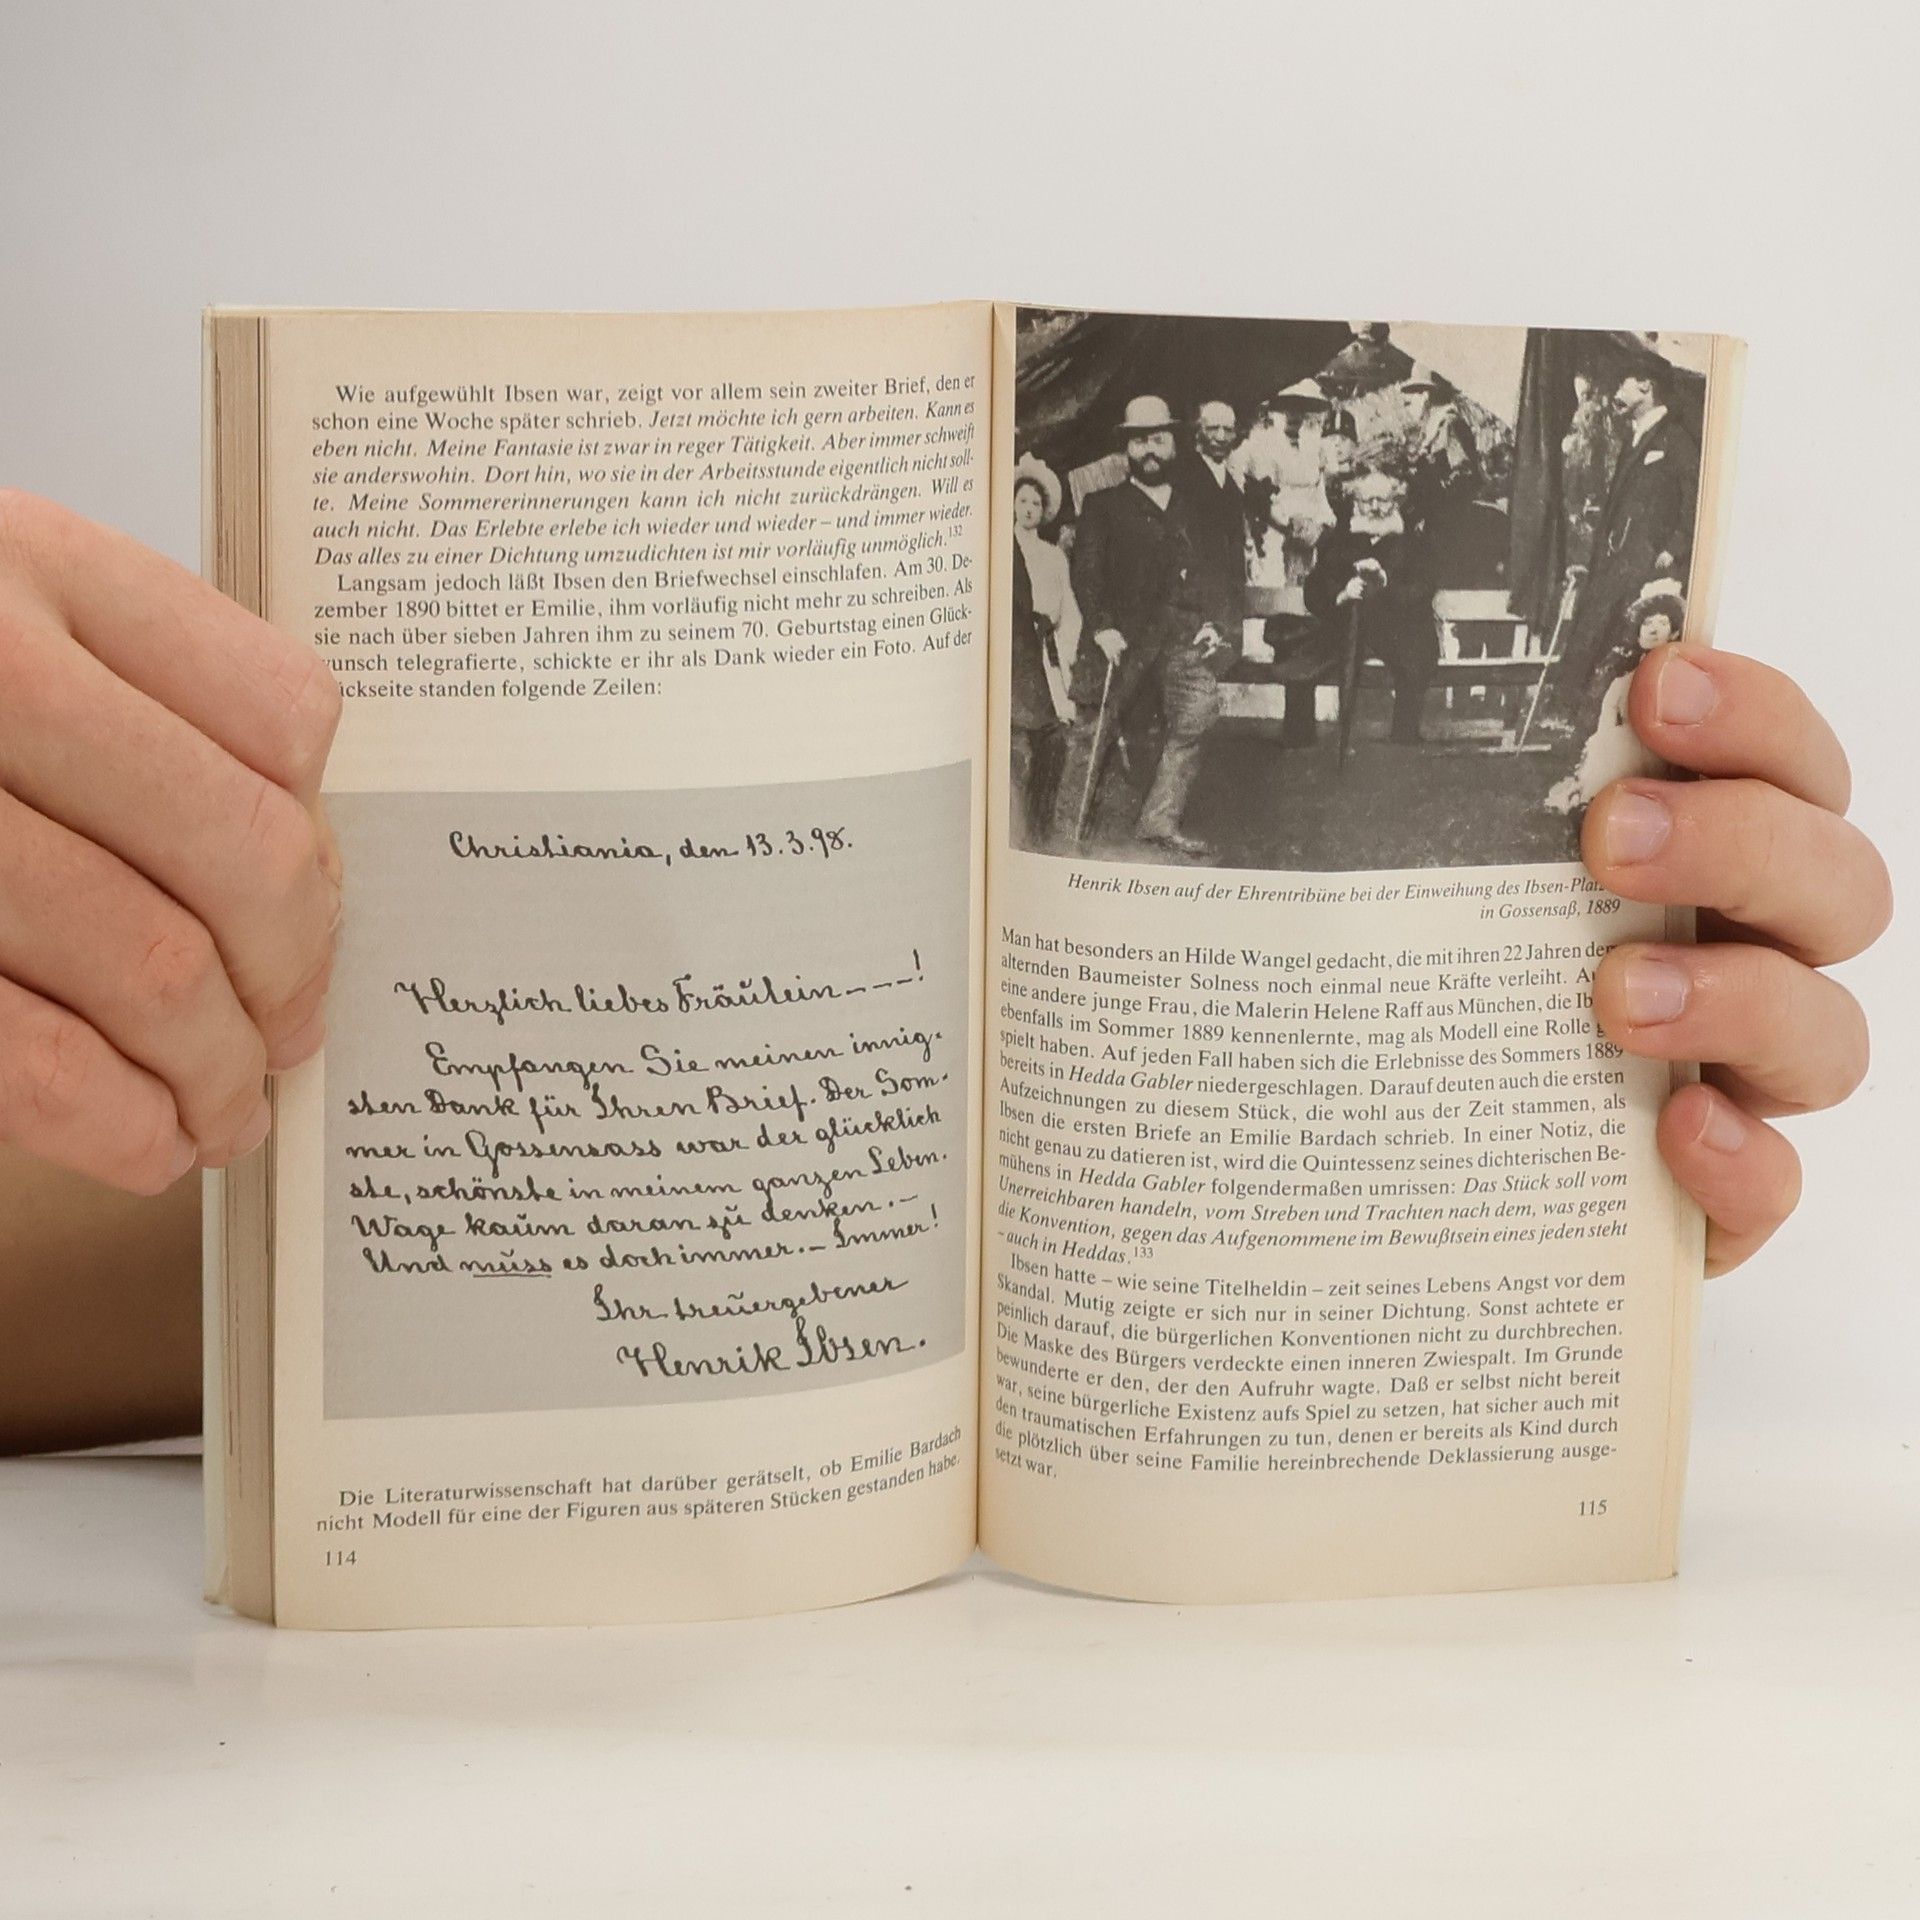 Wie aufgewühlt Ibsen war, zeigt vor allem sein zweiter Brief, den er
schon eine Woche später schrieb. Jetzt möchte ich gern arbeiten. Kann es
eben nicht. Meine Fantasie ist zwar in reger Tätigkeit. Aber immer schweift
sie anderswohin. Dort hin, wo sie in der Arbeitsstunde eigentlich nicht soll-
te. Meine Sommererinnerungen kann ich nicht zurückdrängen. Will es
auch nicht. Das Erlebte erlebe ich wieder und wieder – und immer wieder.
Das alles zu einer Dichtung umzudichten ist mir vorläufig unmöglich.132
Langsam jedoch läßt Ibsen den Briefwechsel einschlafen. Am 30. De-
zember 1890 bittet er Emilie, ihm vorläufig nicht mehr zu schreiben. Als
sie nach über sieben Jahren ihm zu seinem 70. Geburtstag einen Glück-
wunsch telegrafierte, schickte er ihr als Dank wieder ein Foto. Auf der
ückseite standen folgende Zeilen:
Christiania, den 13.3.98.
Herzlich liebes Fräulein – – – !
Empfangen Sie meinen innig-
sten Dank für Ihren Brief. Der Som-
mer in Gossensass war der glücklich
ste, schönste in meinem ganzen Leben.
Wage kaum daran zu denken. –
Und muss es doch immer. – Immer!
Ihr treuergebener
Henrik Ibsen.
Die Literaturwissenschaft hat darüber gerätselt, ob Emilie Bardach
nicht Modell für eine der Figuren aus späteren Stücken gestanden habe.
114
Henrik Ibsen auf der Ehrentribüne bei der Einweihung des Ibsen-Platz
in Gossensaß, 1889
Man hat besonders an Hilde Wangel gedacht, die mit ihren 22 Jahren dem
alternden Baumeister Solness noch einmal neue Kräfte verleiht. A
eine andere junge Frau, die Malerin Helene Raff aus München, die Ib
ebenfalls im Sommer 1889 kennenlernte, mag als Modell eine Rolle g
spielt haben. Auf jeden Fall haben sich die Erlebnisse des Sommers 1889
bereits in Hedda Gabler niedergeschlagen. Darauf deuten auch die ersten
Aufzeichnungen zu diesem Stück, die wohl aus der Zeit stammen, als
Ibsen die ersten Briefe an Emilie Bardach schrieb. In einer Notiz, die
nicht genau zu datieren ist, wird die Quintessenz seines dichterischen Be-
mühens in Hedda Gabler folgendermaßen umrissen: Das Stück soll vom
Unerreichbaren handeln, vom Streben und Trachten nach dem, was gegen
die Konvention, gegen das Aufgenommene im Bewußtsein eines jeden steht
– auch in Heddas.133
Ibsen hatte – wie seine Titelheldin – zeit seines Lebens Angst vor dem
Skandal. Mutig zeigte er sich nur in seiner Dichtung. Sonst achtete er
peinlich darauf, die bürgerlichen Konventionen nicht zu durchbrechen.
Die Maske des Bürgers verdeckte einen inneren Zwiespalt. Im Grunde
bewunderte er den, der den Aufruhr wagte. Daß er selbst nicht bereit
war, seine bürgerliche Existenz aufs Spiel zu setzen, hat sicher auch mit
den traumatischen Erfahrungen zu tun, denen er bereits als Kind durch
die plötzlich über seine Familie hereinbrechende Deklassierung ausge-
setzt war.
115